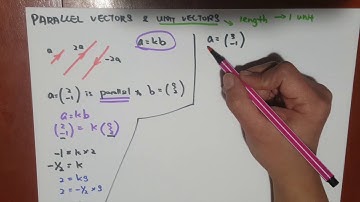 PARALLEL VECTORS & UNIT VECTORS → length → 1 unit
a 2a -2a
a = kb
a = (2 -1) is parallel to b = (3 2)
a = kb
(2 -1) = k (3 2)
-1 = k × 2
-½ = k
2 = k3
2 = -½ × 3
a = (3 -1)